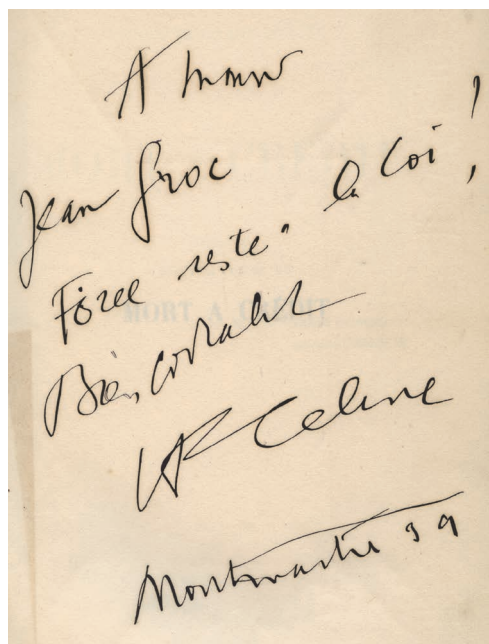 A mons
Jean Groc
Force reste à la Loi !
Bien cordialement
LF Celine
Montmartre 39
MORT A CRÉDIT